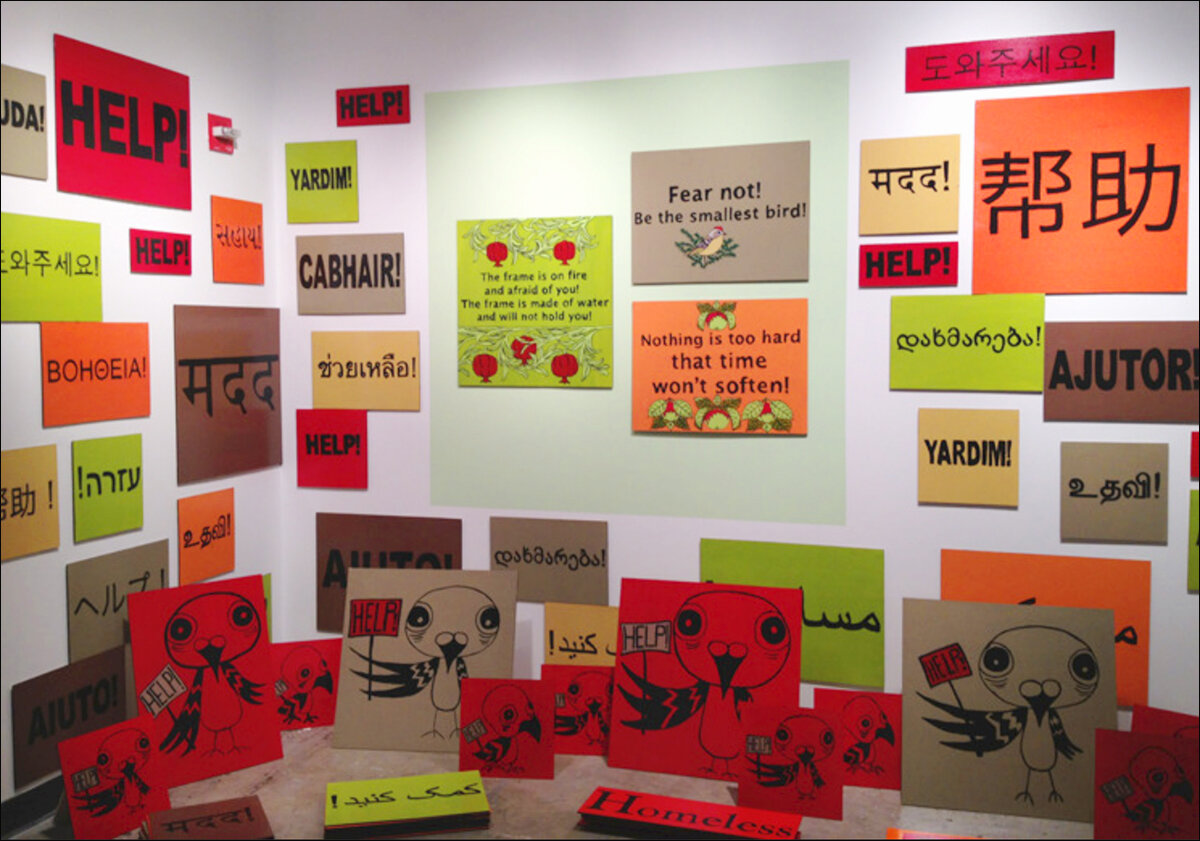 HELP!
HELP!
YARDIM!
सहाय!
HELP!
도와주세요!
CABHAIR!
ΒΟΗΘΕΙΑ!
मदद
ช่วยเหลือ!
HELP!
עזרה!
帮助!
உதவி!
ヘルプ!
AIUTO!
The frame is on fire
and afraid of you!
The frame is made of water
and will not hold you!
Fear not!
Be the smallest bird!
Nothing is too hard
that time
won't soften!
도와주세요!
मदद!
帮助
HELP!
დახმარება!
AJUTOR!
YARDIM!
உதவி!
AIUTO!
დახმარება!
HELP!
HELP!
HELP!
HELP!
HELP!
HELP!
HELP!
HELP!
मदद!
کمک کنید!
Homeless